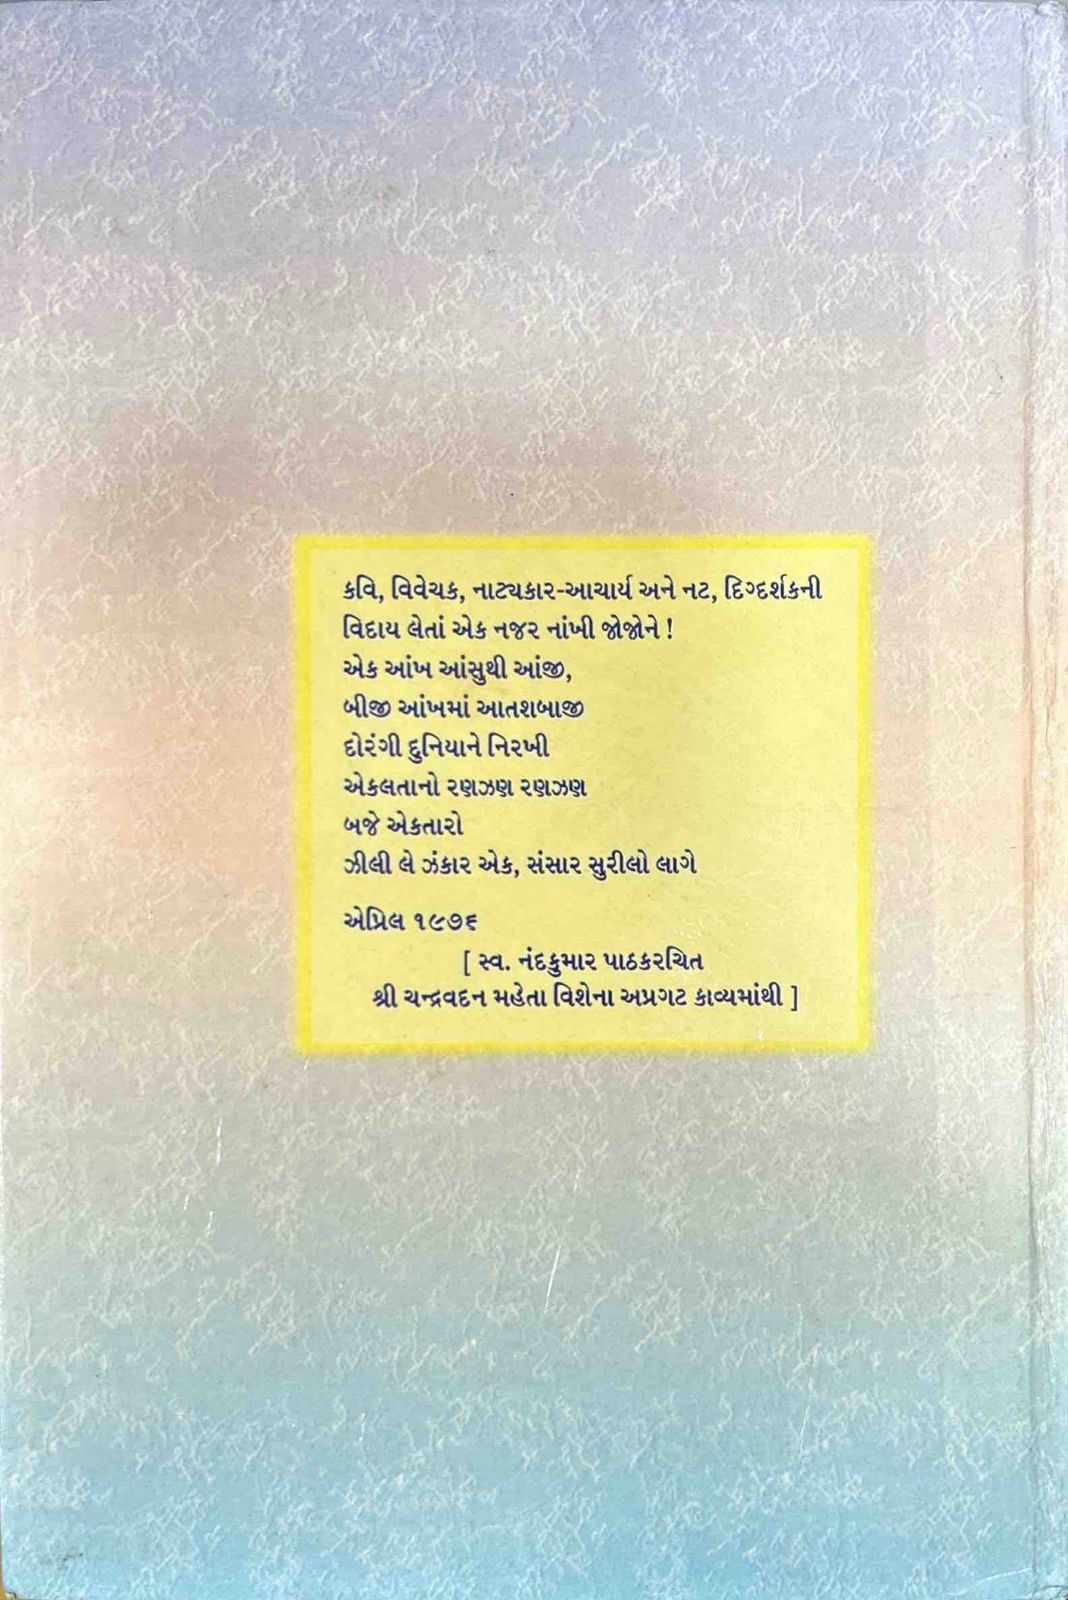 કવિ, વિવેચક, નાટ્યકાર-આચાર્ય અને નટ, દિગ્દર્શકની
વિદાય લેતાં એક નજર નાંખી જોજોને !
એક આંખ આંસુથી આંજી,
બીજી આંખમાં આતશબાજી
દોરંગી દુનિયાને નિરખી
એકલતાનો રણઝણ રણઝણ
બજે એકતારો
ઝીલી લે ઝંકાર એક, સંસાર સુરીલો લાગે
એપ્રિલ ૧૯૭૬
[ સ્વ. નંદકુમાર પાઠકરચિત
શ્રી ચન્દ્રવદન મહેતા વિશેના અપ્રગટ કાવ્યમાંથી ]